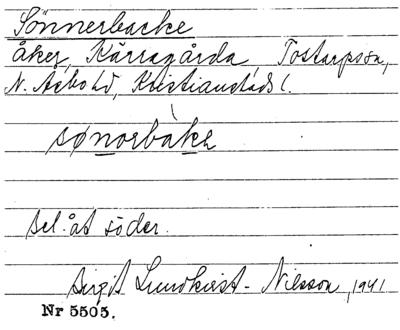 Sönnerbacke
åker, Kärragårda Tostarpssn,
N. Åsbo hd, Kristianstads l.
sønorbakə
Bel. åt söder.
Birgit Lundkvist-Nilsson, 1941
Nr 5505.